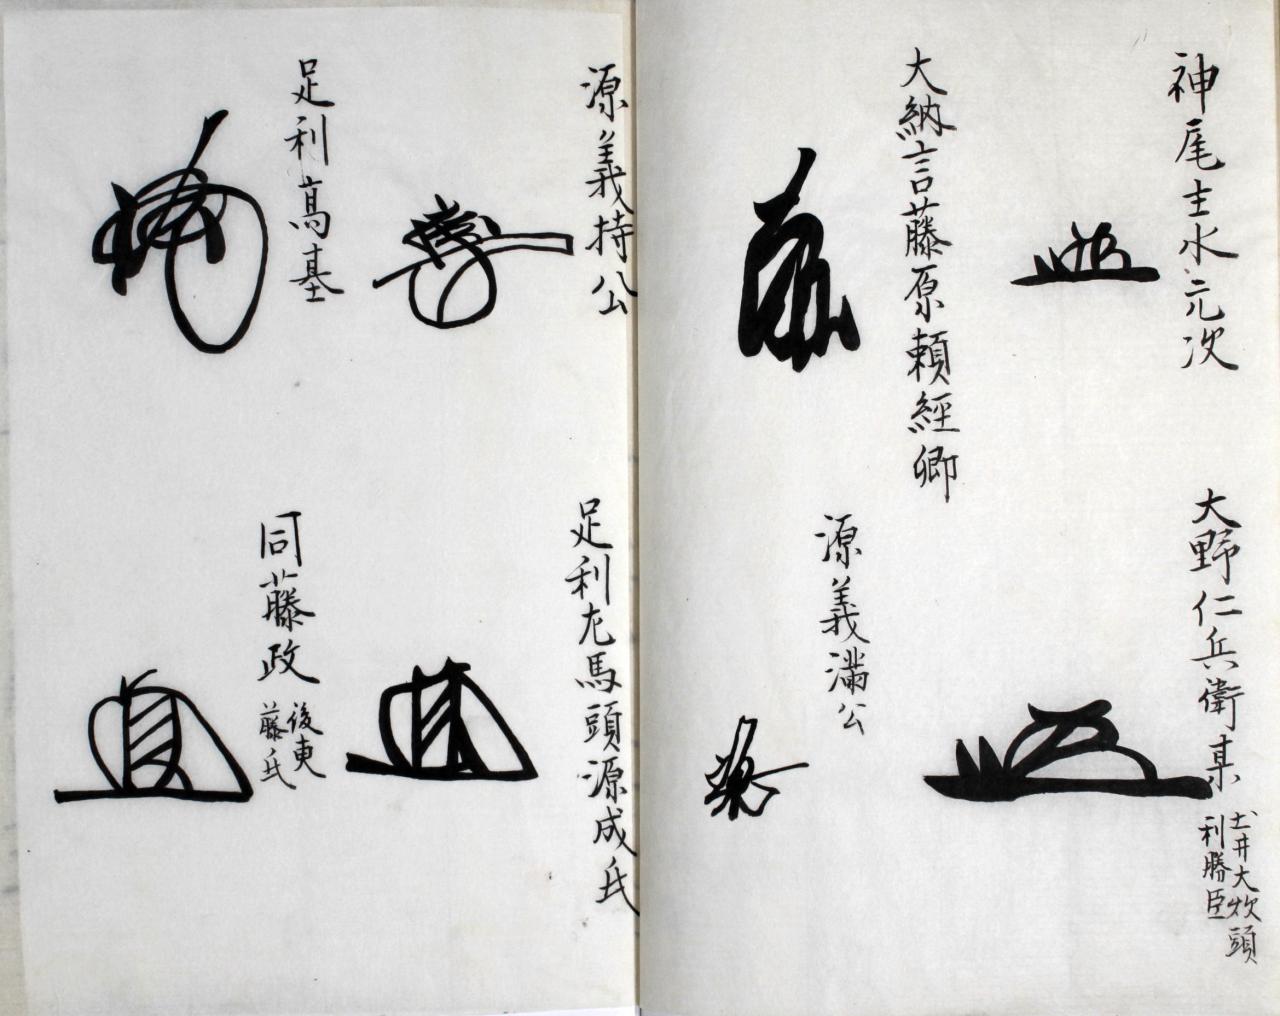 神尾主水元次
大野仁兵衛某
土井大炊頭
利勝臣
大納言藤原頼經卿
源義満公
源義持公
足利左馬頭源成氏
足利高基
同藤政
後東
藤氏